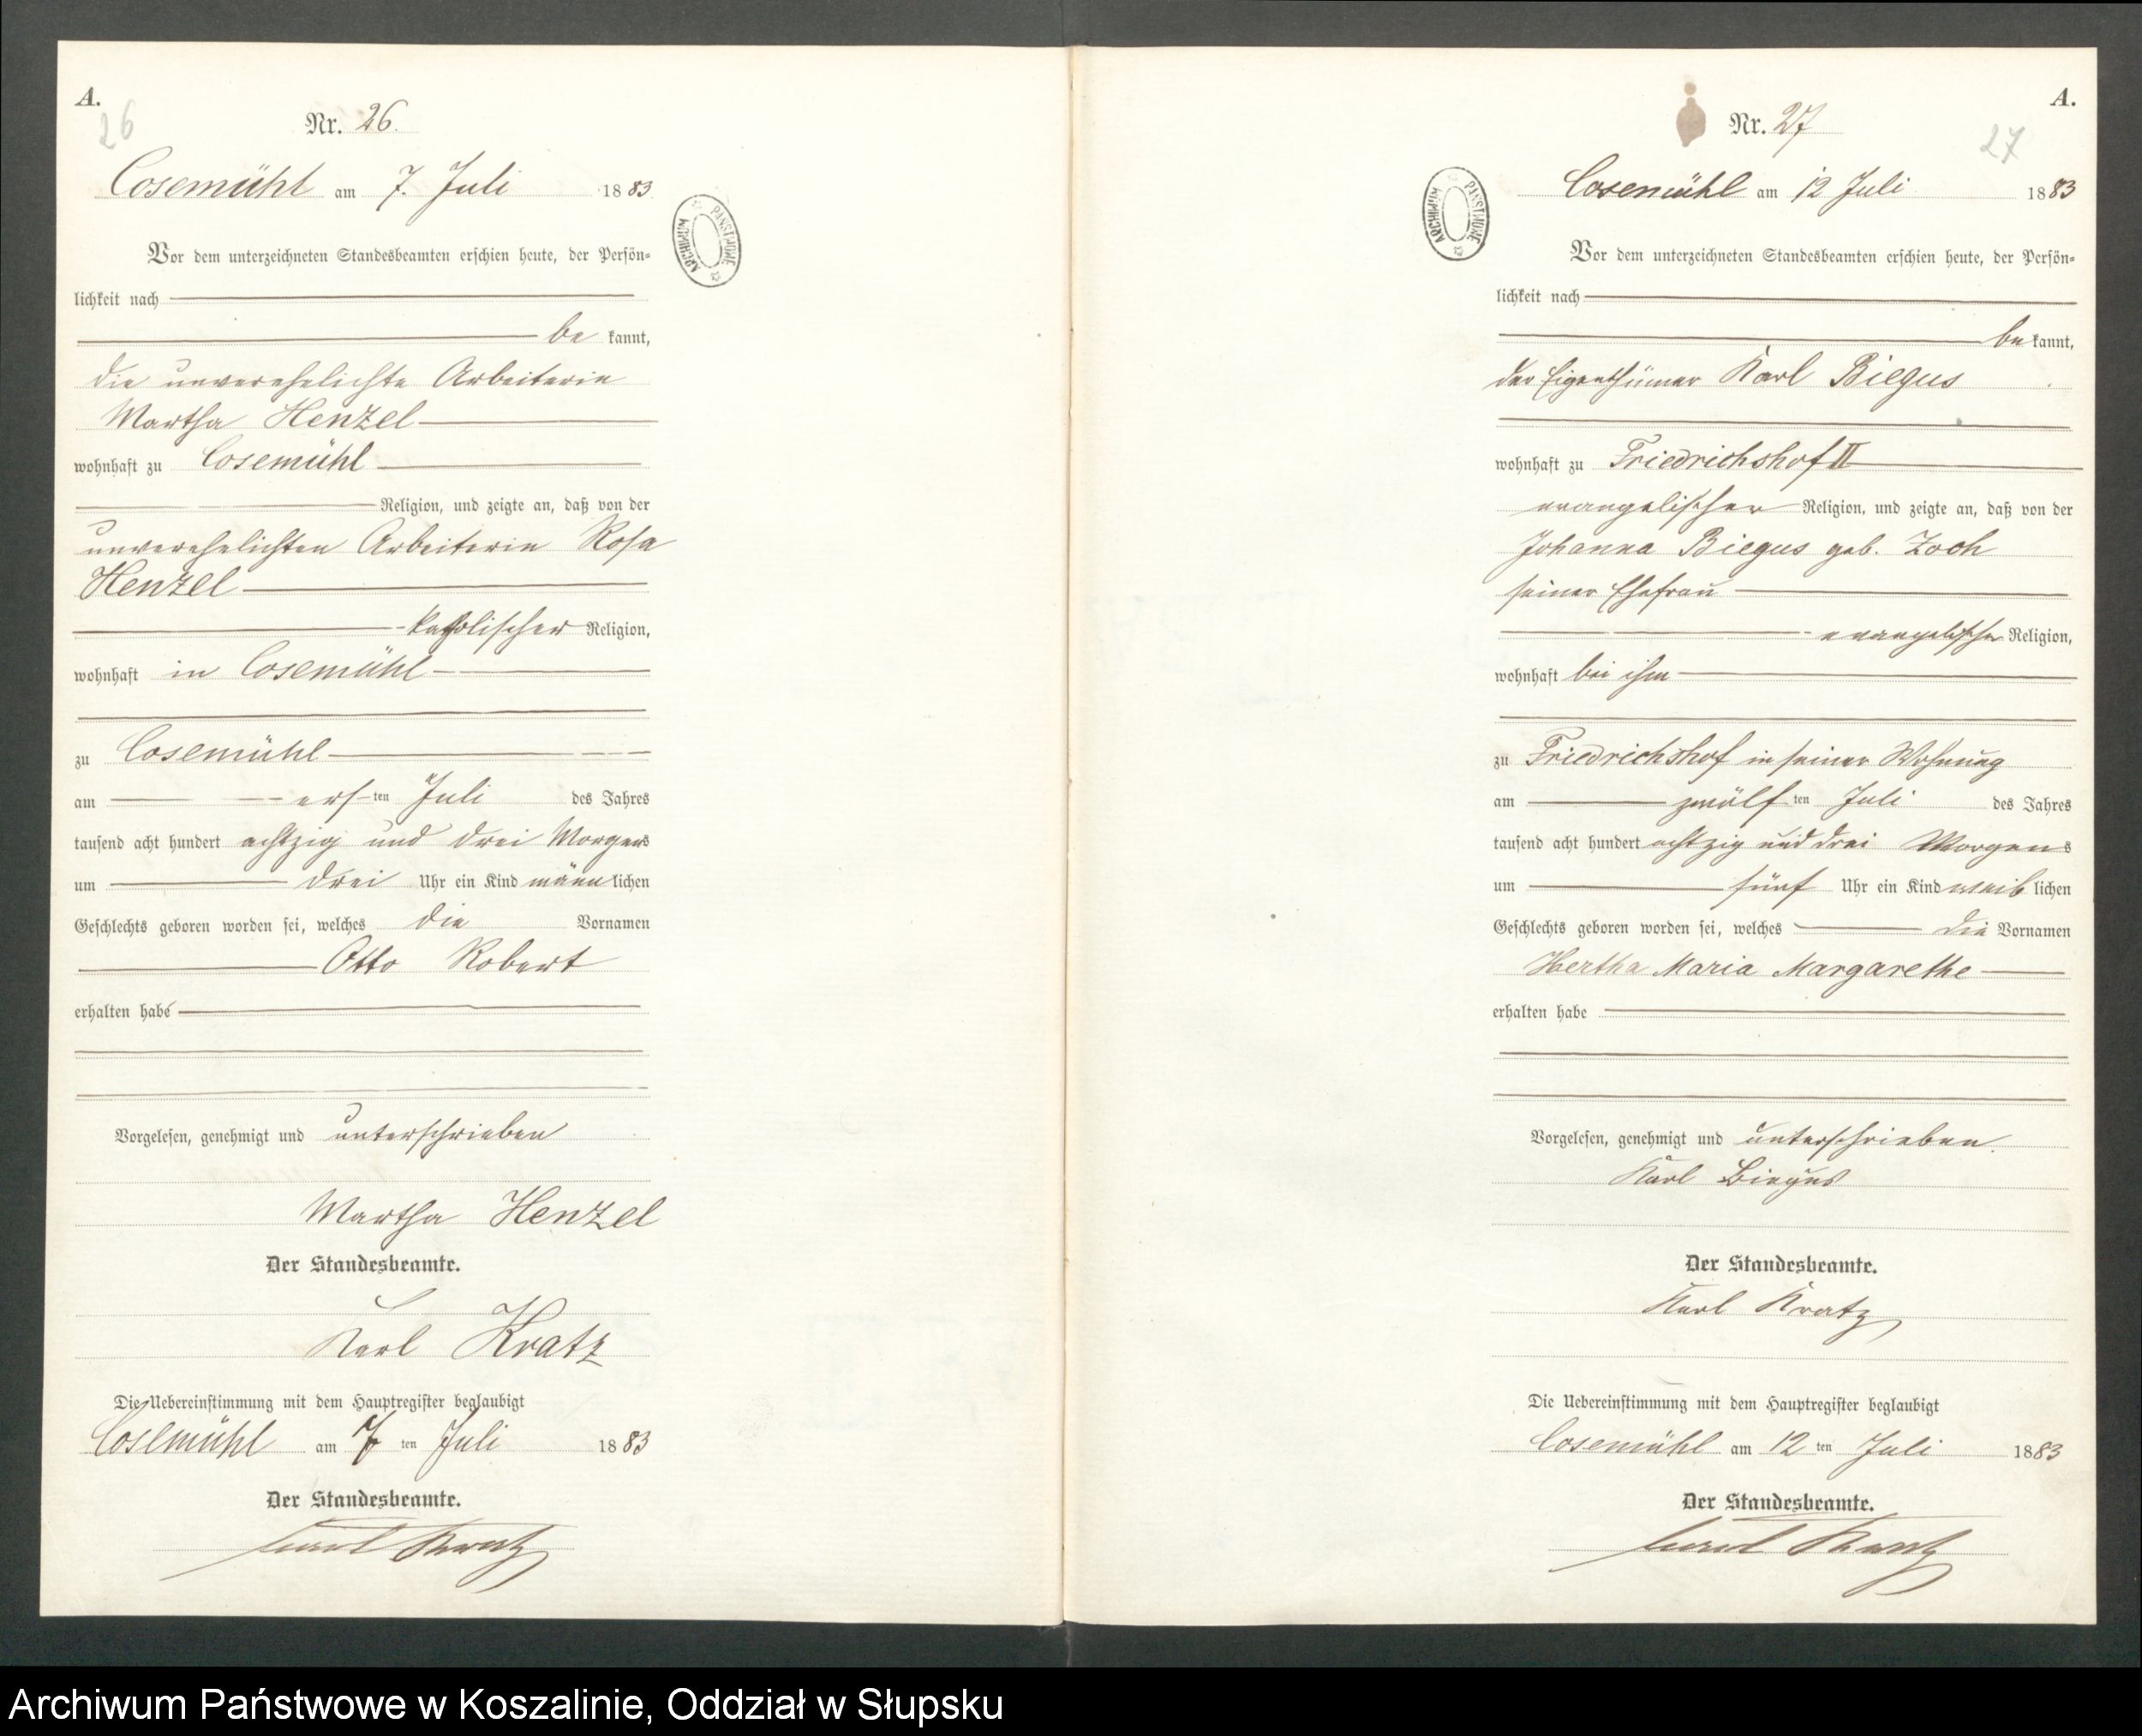 A.
26
Nr. 26.
Cosemühl am 7. Juli 1883
Vor dem unterzeichneten Standesbeamten erschien heute, der Persön-
lichkeit nach
be kannt,
die unverehelichte Arbeiterin
Martha Henzel
wohnhaft zu Cosemühl
Religion, und zeigte an, daß von der
unverehelichten Arbeiterin Rosa
Henzel
katholischer Religion,
wohnhaft in Cosemühl
zu Cosemühl
am ersten Juli des Jahres
tausend acht hundert achtzig und drei Morgens
um drei Uhr ein Kind männlichen
Geschlechts geboren worden sei, welches die Vornamen
Otto Robert
erhalten habe
Vorgelesen, genehmigt und unterschrieben
Martha Henzel
Der Standesbeamte.
Karl Kratz
Die Uebereinstimmung mit dem Hauptregister beglaubigt
Cosemühl am 7ten Juli 1883
Der Standesbeamte.
Carl Kratz
ARCHIWUM PAŃSTWOWE
A.
27
Nr. 27
Cosemühl am 12 Juli 1883
ARCHIWUM PAŃSTWOWE
Vor dem unterzeichneten Standesbeamten erschien heute, der Persön-
lichkeit nach
be kannt,
der Eigenthümer Karl Biegus
wohnhaft zu Friedrichshof II
evangelischer Religion, und zeigte an, daß von der
Johanna Biegus geb. Zoch
seiner Ehefrau
evangelischer Religion,
wohnhaft bei ihm
zu Friedrichshof in seiner Wohnung
am zwölften Juli des Jahres
tausend acht hundert achtzig und drei Morgens
um fünf Uhr ein Kind weiblichen
Geschlechts geboren worden sei, welches die Vornamen
Hertha Maria Margarethe
erhalten habe
Vorgelesen, genehmigt und unterschrieben.
Karl Biegus
Der Standesbeamte.
Karl Kratz
Die Uebereinstimmung mit dem Hauptregister beglaubigt
Cosemühl am 12ten Juli 1883
Der Standesbeamte.
Carl Kratz
Archiwum Państwowe w Koszalinie, Oddział w Słupsku